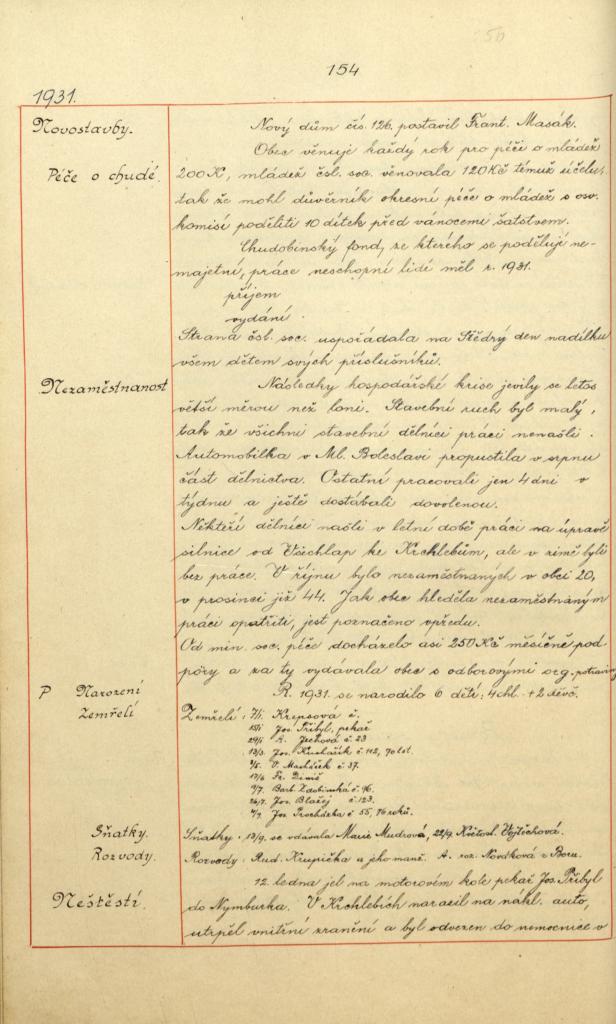 154
1931.
Novostavby.
Nový dům čís. 126. postavil Frant. Masák.
Obec věnuje každý rok pro péči o mládež
Péče o chudé.
200 K, mládež čsl. soc. věnovala 120 Kč témuž účelu,
tak že mohl důvěrník okresní péče o mládež s osv.
komisí poděliti 10 dítek před vánocemi šatstvem.
Chudobinský fond, ze kterého se podělují ne-
majetní, práce neschopní lidé měl r. 1931.
příjem
vydání.
Strana čsl. soc. uspořádala na Štědrý den nadílku
všem dětem svých příslušníků.
Nezaměstnanost
Následky hospodářské krise jevily se letos
větší měrou než loni. Stavební ruch byl malý,
tak že všichni stavební dělníci práci nenašli.
Automobilka v Ml. Boleslavi propustila v srpnu
část dělnictva. Ostatní pracovali jen 4 dni v
týdnu a ještě dostávali dovolenou.
Někteří dělníci našli v letní době práci na úpravě
silnice od Všechlap ke Krchlebům, ale v zimě byli
bez práce. V říjnu bylo nezaměstnaných v obci 20,
v prosinci již 44. Jak obec hleděla nezaměstnaným
práci opatřiti, jest poznačeno vpředu.
Od min. soc. péče docházelo asi 250 Kč měsíčně pod-
póry a za ty vydávala obec s odborovými org. potraviny
P Narození
R. 1931 se narodilo 6 dětí; 4 chl. + 2 děvč.
Zemřelí
Zemřelí: 7/1. Krupsová č.
15/1 Jos. Přibyl, pekař
č. 23
Jos. Kuchařík č. 112, 70 let.
V. Macháček č. 37.
Fr.
9/7. Barb. Zdobinská č. 96.
Jos. Blažej č. 123.
Jos. Procházka č. 55, 76 roků.
Sňatky.
Sňatky: 13/9. se vdávala Marie Mudrová, 22/9. Květosl. Vojtěchová.
Rozvody.
Rozvody: Rud. Krupička a jeho manž. A. roz. Nováková z Boru.
12. ledna jel na motorovém kole pekař Jos. Přibyl
Neštěstí.
do Nymburka. V Krchlebích narazil na nákl. auto,
utrpěl vnitřní zranění a byl odvezen do nemocnice v